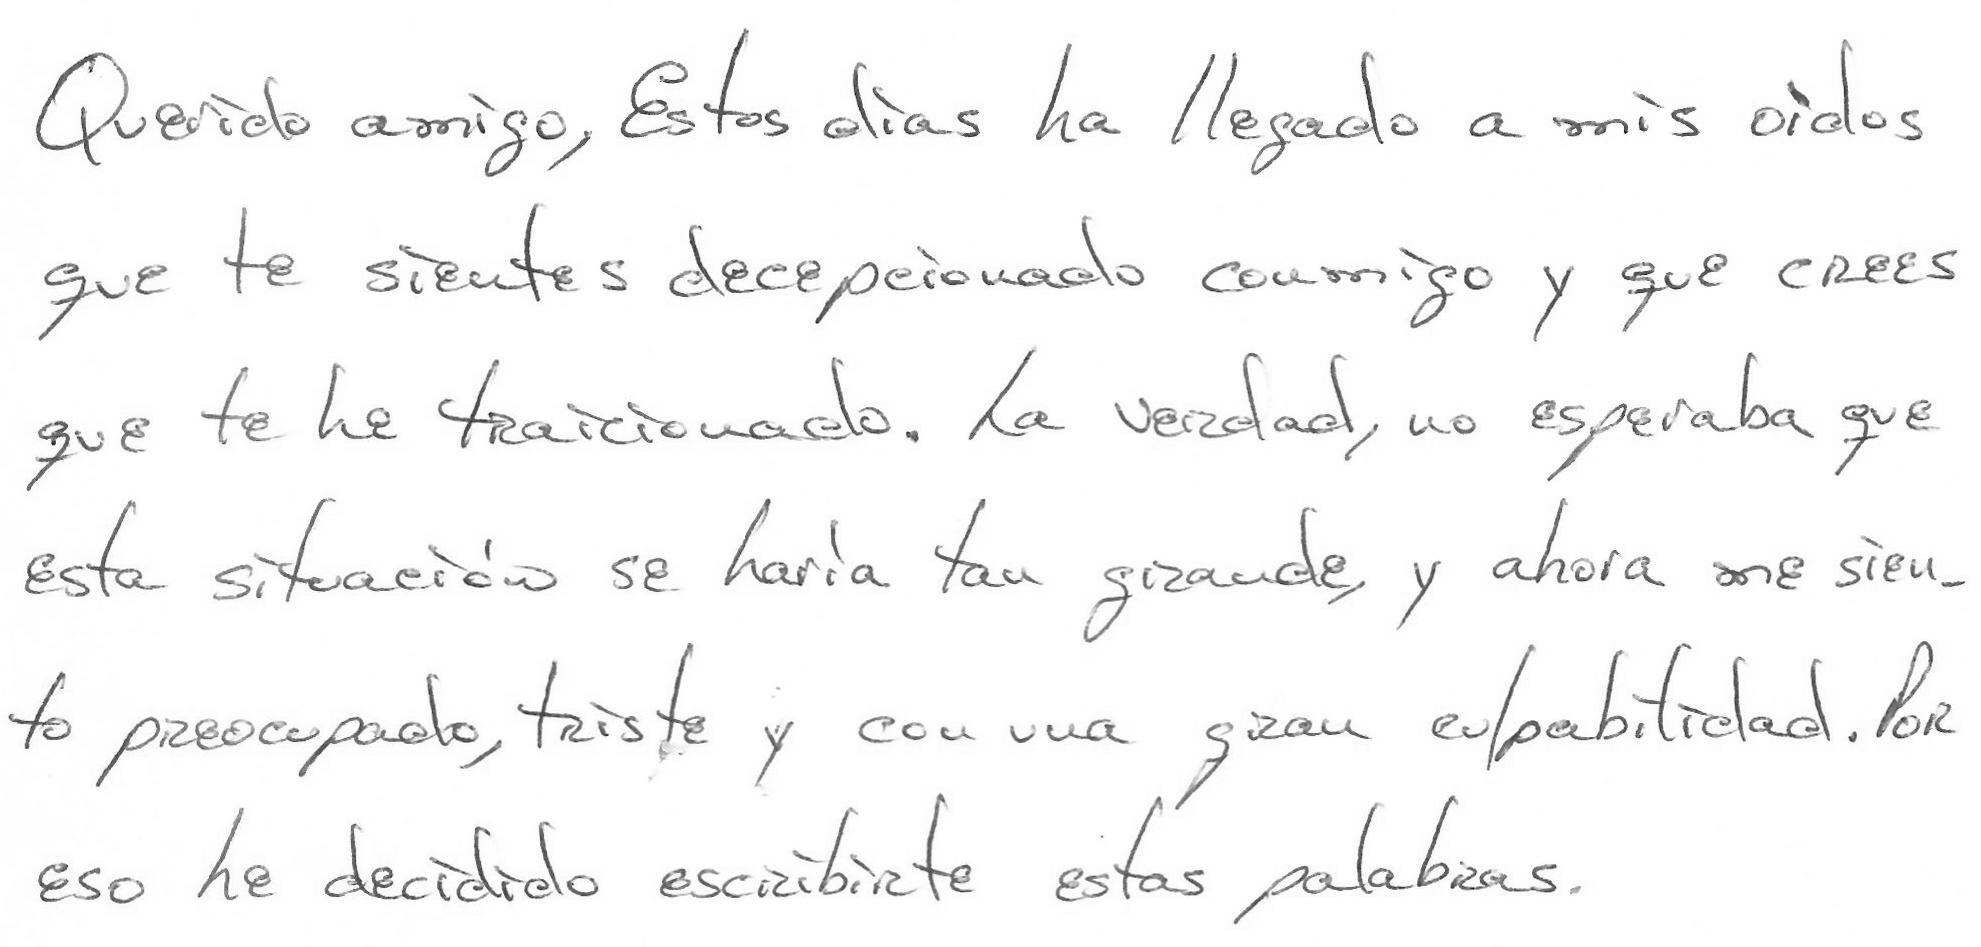 Querido amigo, Estos dias ha llegado a mis oidos
que te sientes decepcionado conmigo y que crees
que te he traicionado. La verdad, no esperaba que
esta situación se haría tan grande, y ahora me sien-
to preocupado, triste y con una gran culpabilidad. Por
eso he decidido escribirte estas palabras.